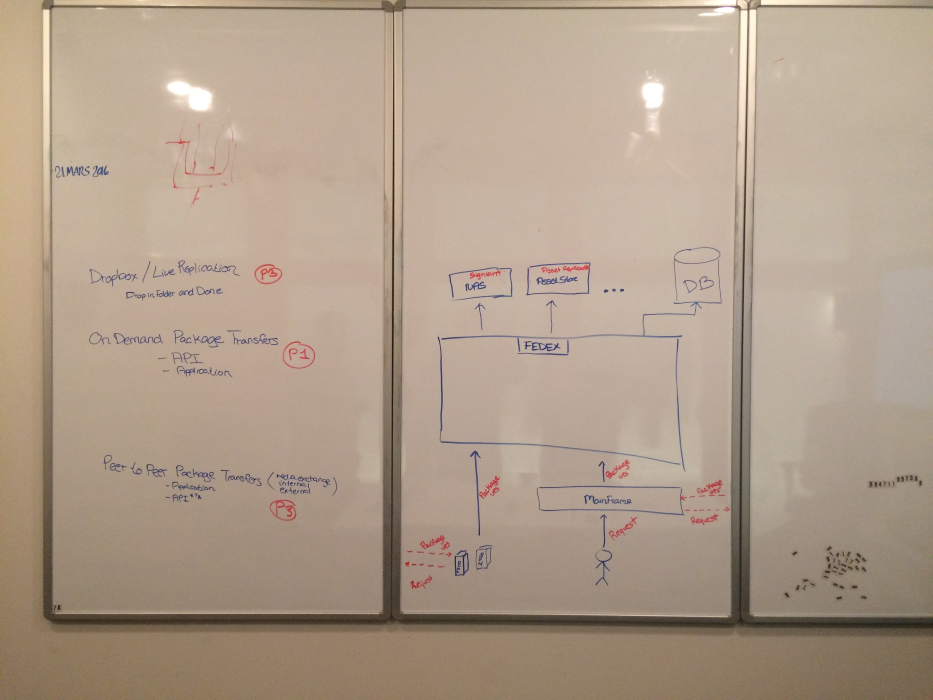 21 MARS 2016
Dropbox / Live Replication P3
Drop in Folder and Done
On Demand Package Transfers P1
- API
- Application
Peer to Peer Package Transfers (Media exchange
internal
external)
- Application
- API
P3
Signiant
NAS
Asset Store
...
DB
FEDEX
Package
Package
MainFrame
Package
Request
Request
Package
Request